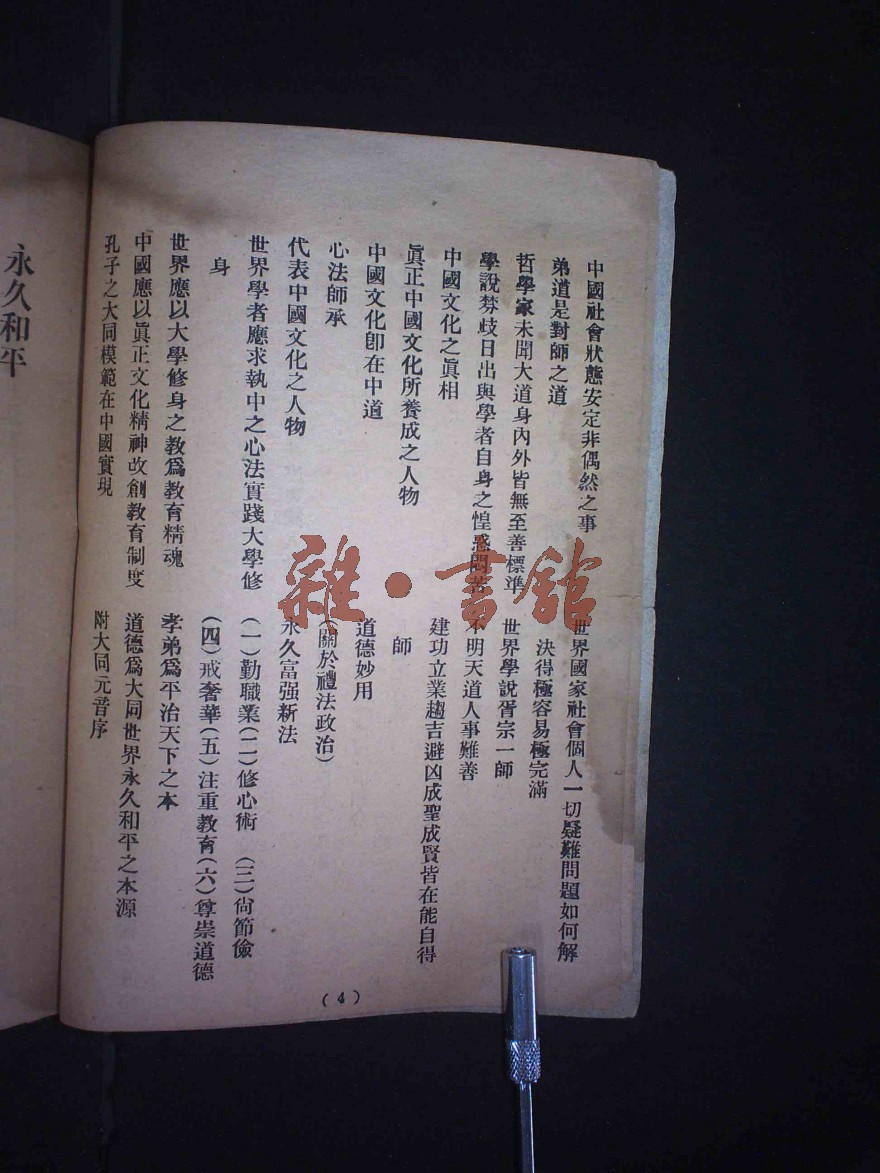 中國社會狀態安定非偶然之事
弟道是對師之道
哲學家未聞大道身內外皆無至善標準
學說棼歧日出與學者自身之惶惑悶苦
中國文化之眞相
眞正中國文化所養成之人物
中國文化卽在中道
心法師承
代表中國文化之人物
世界學者應求執中之心法實踐大學修
身
世界應以大學修身之教爲教育精魂
中國應以眞正文化精神改創教育制度
孔子之大同模範在中國實現
世界國家社會個人一切疑難問題如何解
決得極容易極完滿
世界學說胥宗一師
不明天道人事難善
建功立業趨吉避凶成聖成賢皆在能自得
師
道德妙用
(關於禮法政治)
永久富强新法
(一)勤職業(二)修心術 (三)尙節儉
(四)戒奢華(五)注重教育(六)尊崇道德
孝弟爲平治天下之本
道德爲大同世界永久和平之本源
附大同元音序
(4)
永久和平
雜·書館